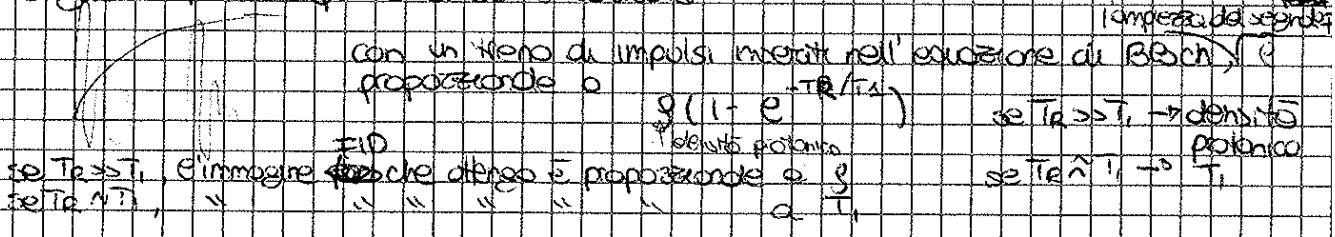 l'ampiezza del segnale
con un treno di impulsi inseriti nell'equazione di Bloch, è
proporzionale a ρ(1 - e^-TR/T1) se TR >> T1 → densità protonica
densità protonica
FID
se TR >> T1, l'immagine che ottengo è proporzionale a ρ se TR ~ T1 → T1
se TR ~ T1, " " " " " " a T1